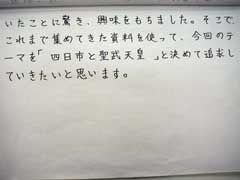 いたことに驚き、興味をもちました。そこで、
これまで集めてきた資料を使って、今回のテ
ーマを「 四日市と聖武天皇 」と決めて追求し
ていきたいと思います。